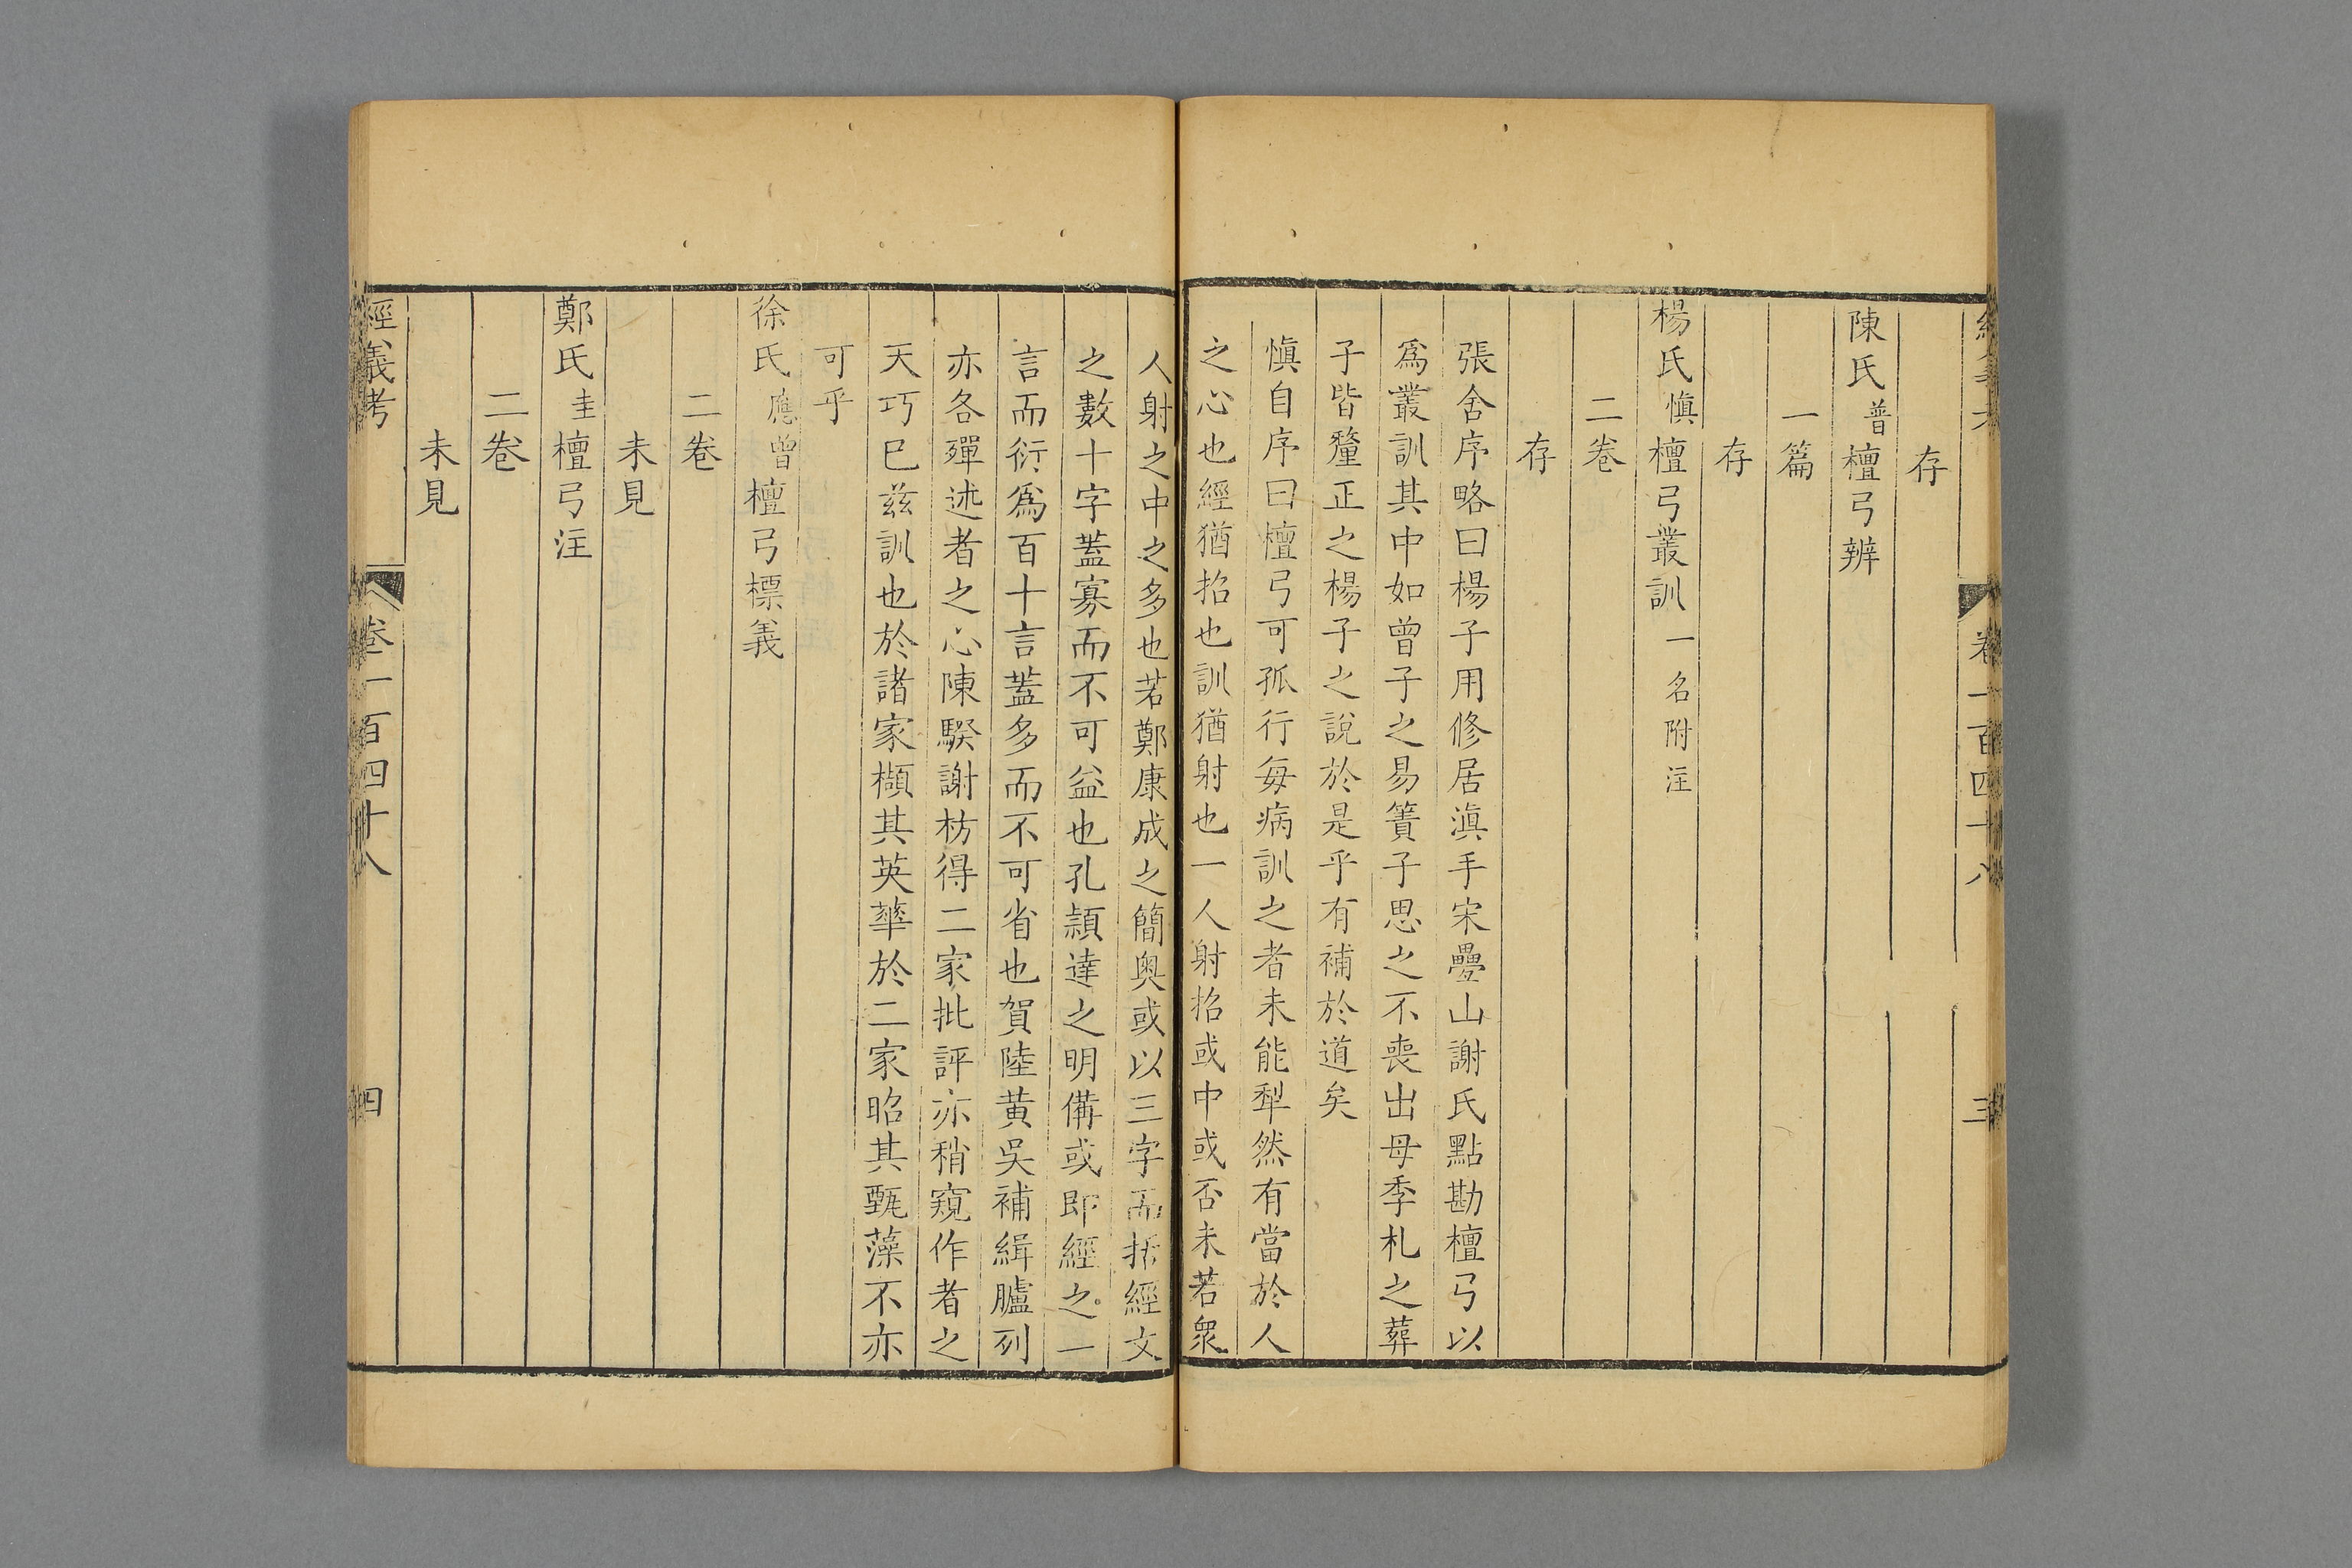 經義考 卷一百四十八 三
存
陳氏普檀弓辨
一篇
存
楊氏慎檀弓叢訓一名附注
二卷
存
張含序略曰楊子用修居滇手宋疊山謝氏點勘檀弓以
為叢訓其中如曾子之易簀子思之不喪出母季札之葬
子皆釐正之楊子之說於是乎有補於道矣
慎自序曰檀弓可孤行每病訓之者未能犁然有當於人
之心也經猶招也訓猶射也一人射招或中或否未若衆
人射之中之多也若鄭康成之簡奧或以三字而括經文
之數十字蓋寡而不可益也孔穎達之明備或即經之一
言而衍為百十言蓋多而不可省也賀陸黃吳補緝臚列
亦各殫述者之心陳騤謝枋得二家批評亦稍窺作者之
天巧已茲訓也於諸家擷其英華於二家昭其甄藻不亦
可乎
徐氏應曾檀弓標義
二卷
未見
鄭氏圭檀弓注
二卷
未見
經義考 卷一百四十八 四